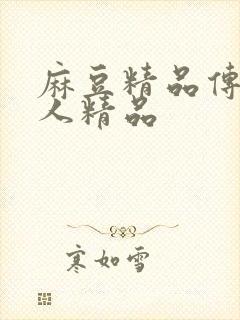 麻豆精品传
人精品
寒如雪